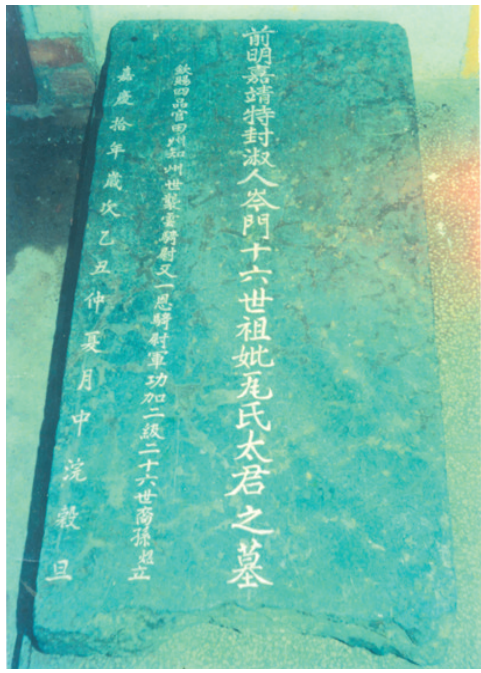 前明嘉靖特封淑人岑門十六世祖妣瓦氏太君之墓
欽賜四品官田州知州世襲雲騎尉又一恩騎尉軍功加二級二十六世裔孫超立
嘉慶拾年歲次乙丑仲夏月中浣穀旦